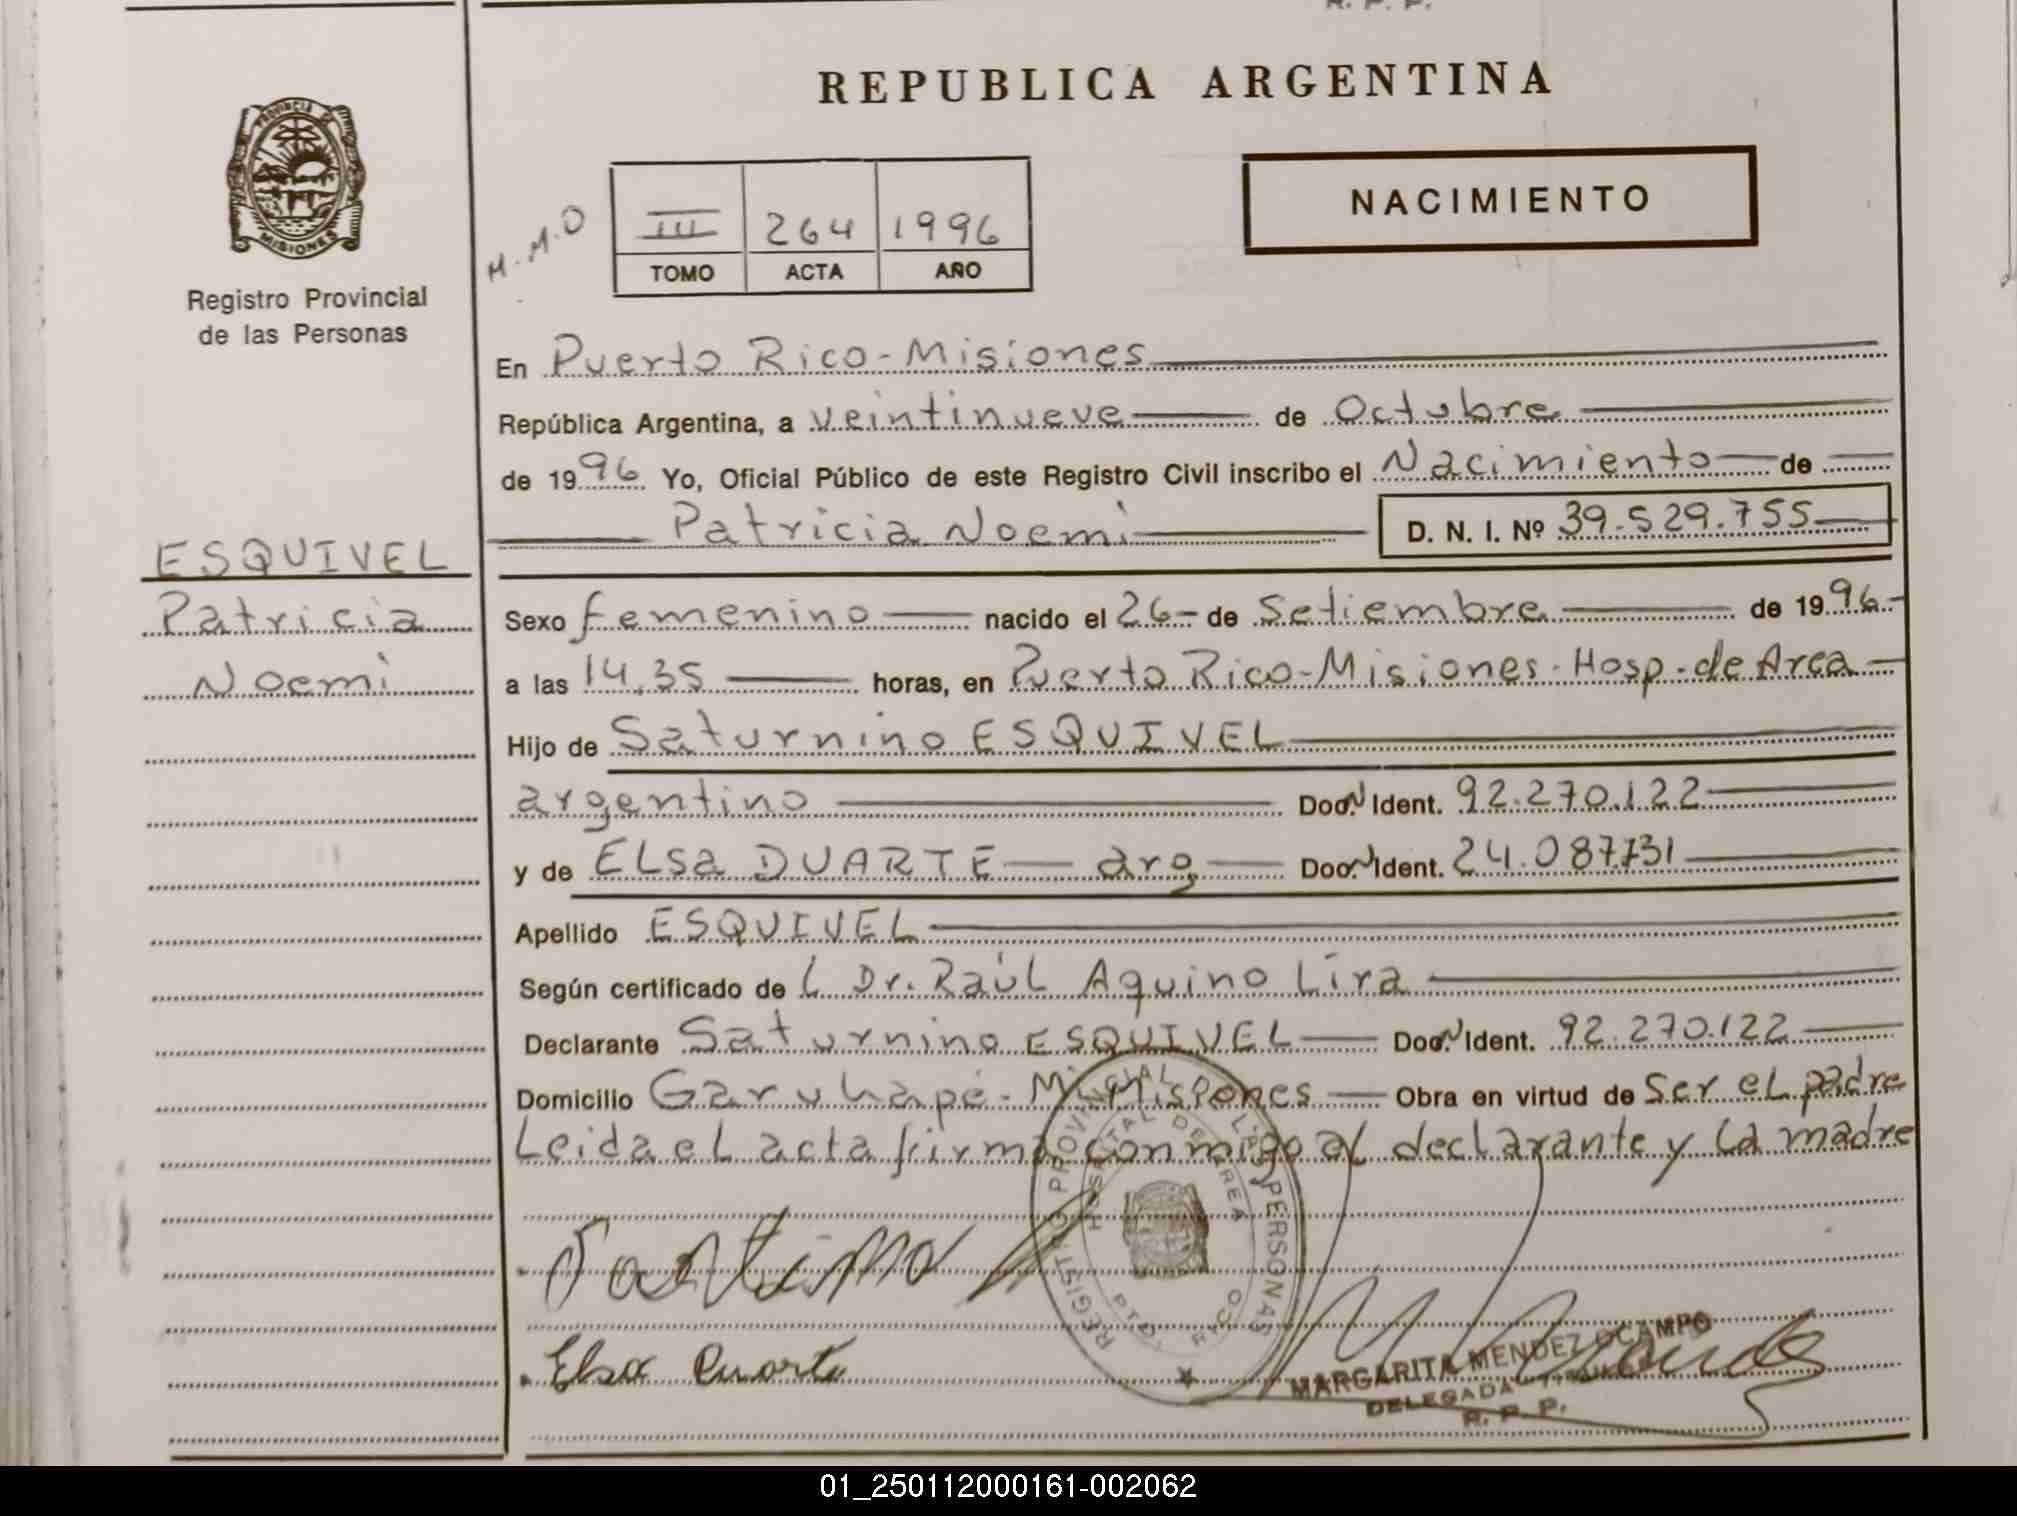 R. P. P.
REPUBLICA ARGENTINA
PROVINCIA DE
MISIONES
Registro Provincial
de las Personas
NACIMIENTO
M.M.O
III 264 1996
TOMO ACTA AÑO
En Puerto Rico-Misiones
República Argentina, a veintinueve de Octubre
de 1996 Yo, Oficial Público de este Registro Civil inscribo el Nacimiento de
Patricia Noemi D. N. I. Nº 39.529.755
ESQUIVEL
Patricia
Noemi
Sexo femenino nacido el 26 de Setiembre de 1996
a las 14,35 horas, en Puerto Rico-Misiones-Hosp.de Area
Hijo de Saturnino ESQUIVEL
argentino Doc. N Ident. 92.270.122
y de ELsa DUARTE arg Doc. N Ident. 24.087.731
Apellido ESQUIVEL
Según certificado de L Dr. Raúl Aquino Lira
Declarante Saturnino ESQUIVEL Doc. N Ident. 92.270.122
Domicilio Garuhapé-Misiones Obra en virtud de Ser el padre
Leida el acta firma conmigo el declarante y la madre
REGISTRO PROVINCIAL DE LAS PERSONAS
HOSPITAL DE AREA
PTO. RICO
Elsa Duarte
MARGARITA MENDEZ OCAMPO
DELEGADA TITULAR
R. P. P.
01_250112000161-002062